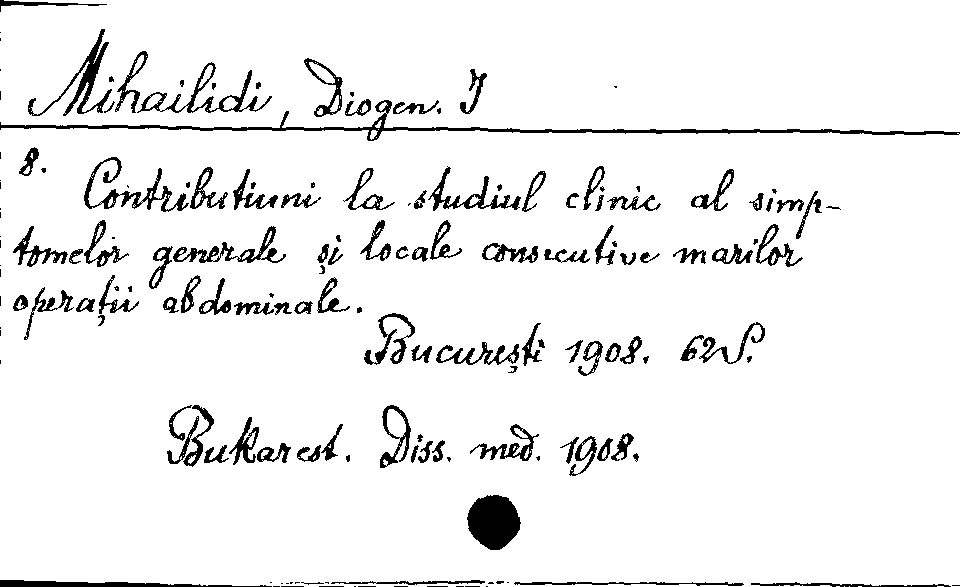 Mihailidi, Diogen. I
8.
Contributiuni la studiul clinic al simp-
tomelor generale și locale consecutive marilor
operații abdominale.
București 1908. 62 S.
Bukarest. Diss. med. 1908.